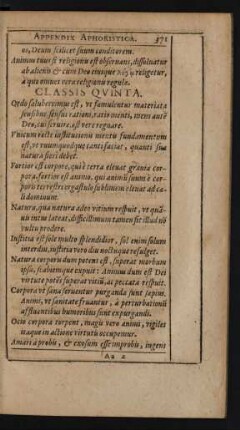 APPENDIX APHORISTICA. 371
os, Deum scilicet suum conditorem.
Animus tuus si religioni est observans, dissolvatur
ab alienis & cum Deo eiusque religetur,
à quo emanet vera religionis regula.
CLASSIS QVINTA.
Ordo saluberrimus est, vt famulentur materiata
sensibus: sensus rationi, ratio menti, mens autē
Deo, cui servire, est vere regnare.
Vnicum recte instituenda mentis fundamentum
est, vt vnumquodque tanti faciat, quanti sua
natura fieri debet.
Fortior est corpore, qui è terra eleuat grande cor-
pora, fortior est animo, qui animū suum è cor-
poris terrestre ergastulo sublimem eleuat ad cæ-
li dominum.
Natura, qua natura adeò vitium respuit, vt quā-
uis intus lateat, difficillimum tamen sit illud nō
vultu prodere.
Iustitia est sole multo splendidior, sol enim solum
interdiu, iustitia verò diu noctuque refulget.
Natura corporis dum potens est, superat morbum
ipso, scabiemque expuit: Animus dum est Dei
virtute potēs superat vitiū, ac peccata respuit.
Corpora vt sana seruentur purganda sunt sæpius.
Animi, vt sanitate fruantur, à perturbationū
affluentibus humoribus sunt expurgandi.
Ocio corpora torpent, magis vero animi, vigiles
itaque in actione virtutis occupentur.
Amari à probis, & exosum esse improbis, ingens
Aa 2